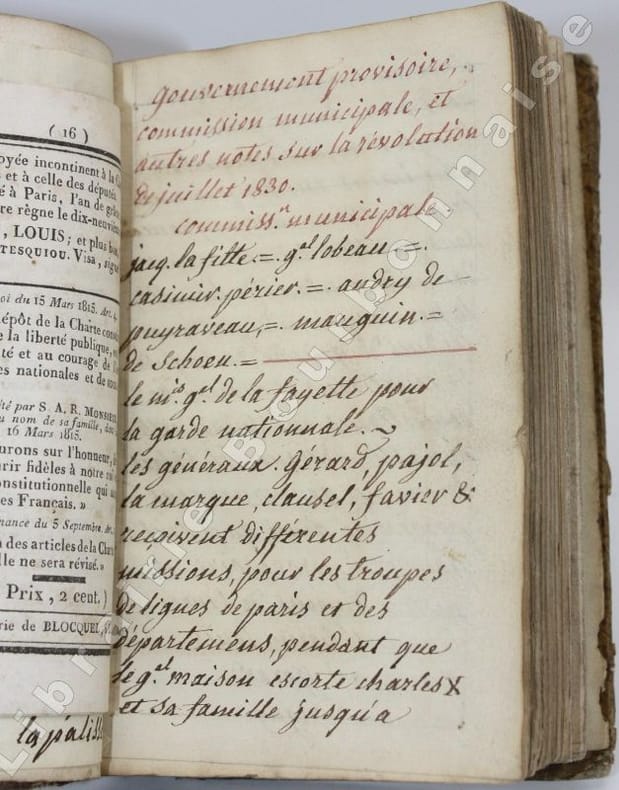 ( 16 )
oyée incontinent à la
s et à celle des députés
é à Paris, l'an de
re règne le dix-neuvième
, LOUIS; et plus bas,
TESQUIOU. Visa,
oi du 15 Mars 1815. Art. 4.
épôt de la Charte
e la liberté publique,
té et au courage de
es nationales et de
ité par S. A. R.
u nom de sa famille,
16 Mars 1815.
urons sur l'honneur,
rir fidèles à notre
onstitutionnelle qui
es Français. »
nance du 5 Septembre.
n des articles de la
lle ne sera révisé. »
Prix, 2 cent. )
rie de BLOCQUEL,
la palisse
gouvernement provisoire,
commission municipale, et
autres notes sur la révolution
de juillet 1830.
commiss.n municipale.
jacq. lafitte. = g.al lobeau =.
casimir. périer. = audry de
puyraveau, =. mauguin. =
de Schoen. =
le m.is g.al de la fayette pour
la garde nationnale. ~
les généraux. Gérard, pajol,
la marque, clausel, favier &
reçoivent différentes
missions, pour les troupes
de lignes de paris et des
départemens, pendant que
le g.al maison escorte charles X
et sa famille jusqu'a
Librairie Bourbonnaise